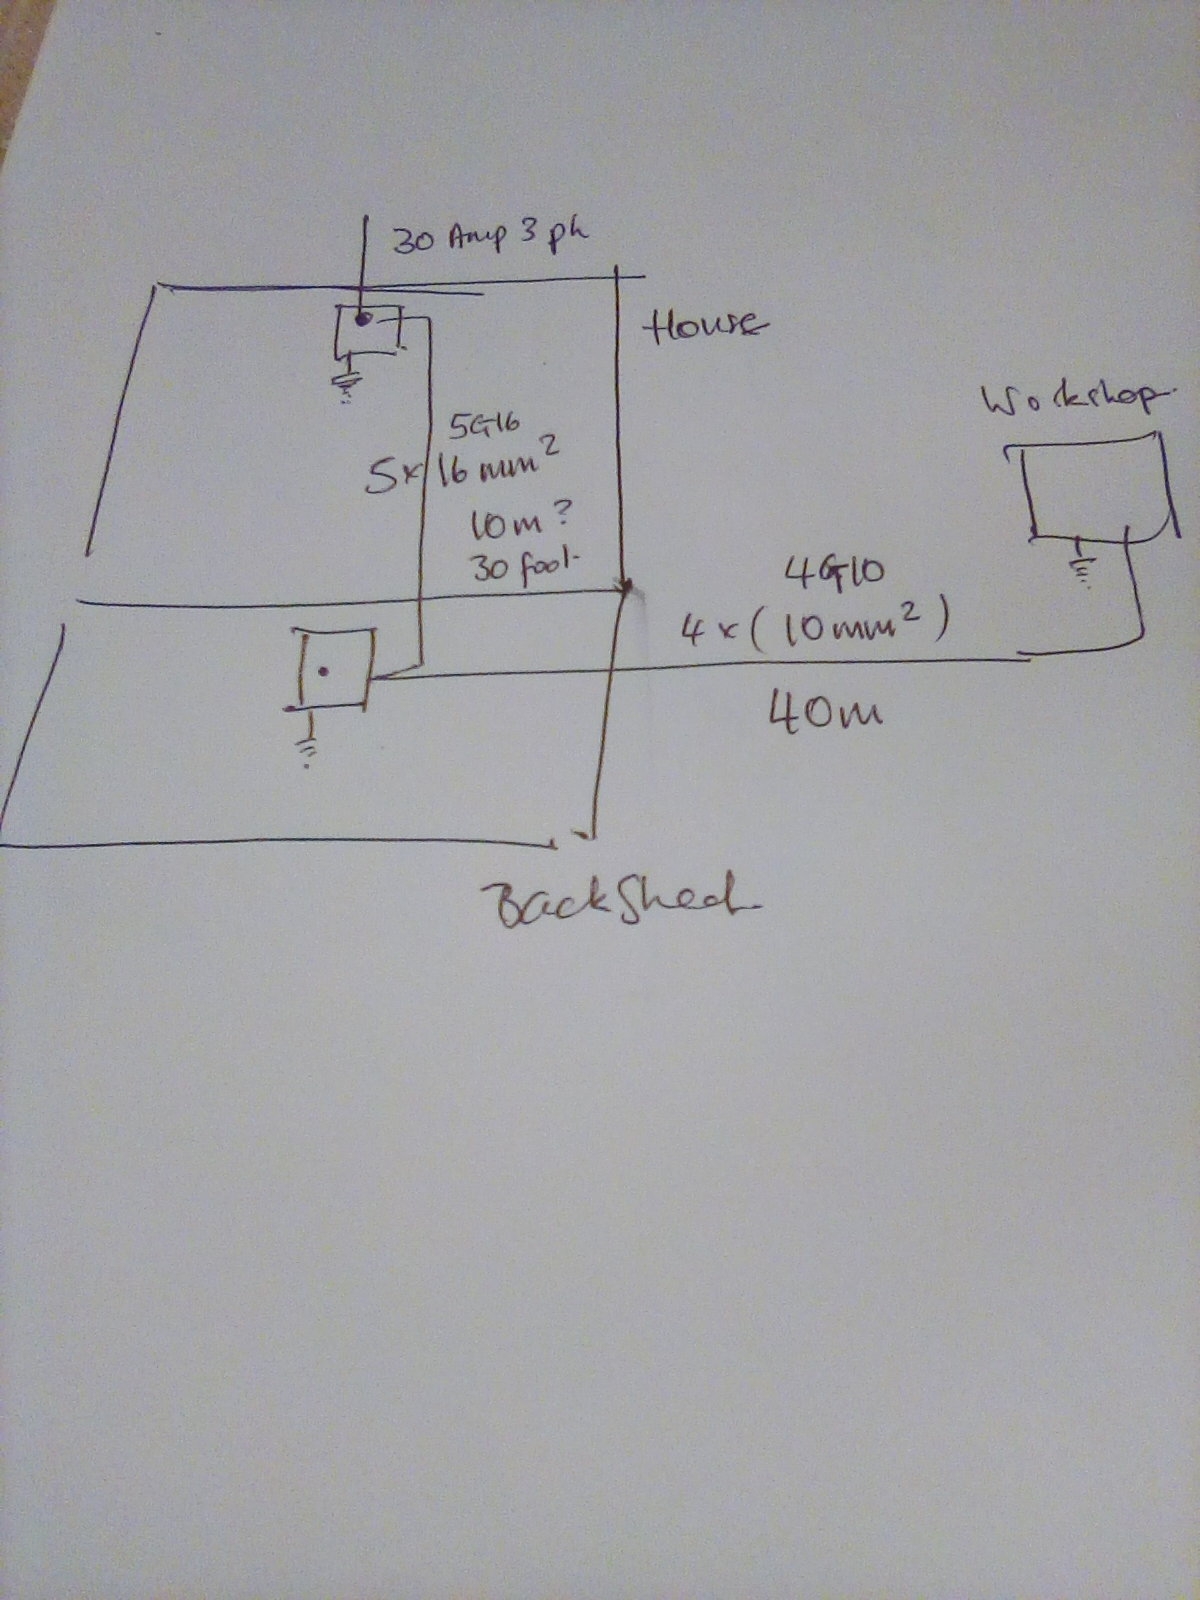 30 Amp 3 ph
House
Workshop
5G16
5x 16 mm²
10m?
30 foot
4G10
4x (10mm²)
40m
Back Shed